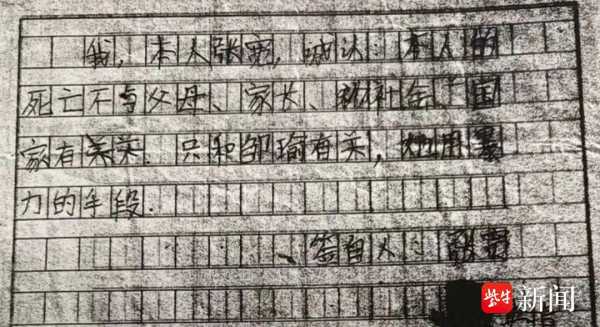 我,本人张宽,诚认:本人的
死亡不与父母、家长、和社会、国
家有关系.只和邹瑜有关,她用暴
力的手段.
签自人:张宽
紫牛新闻